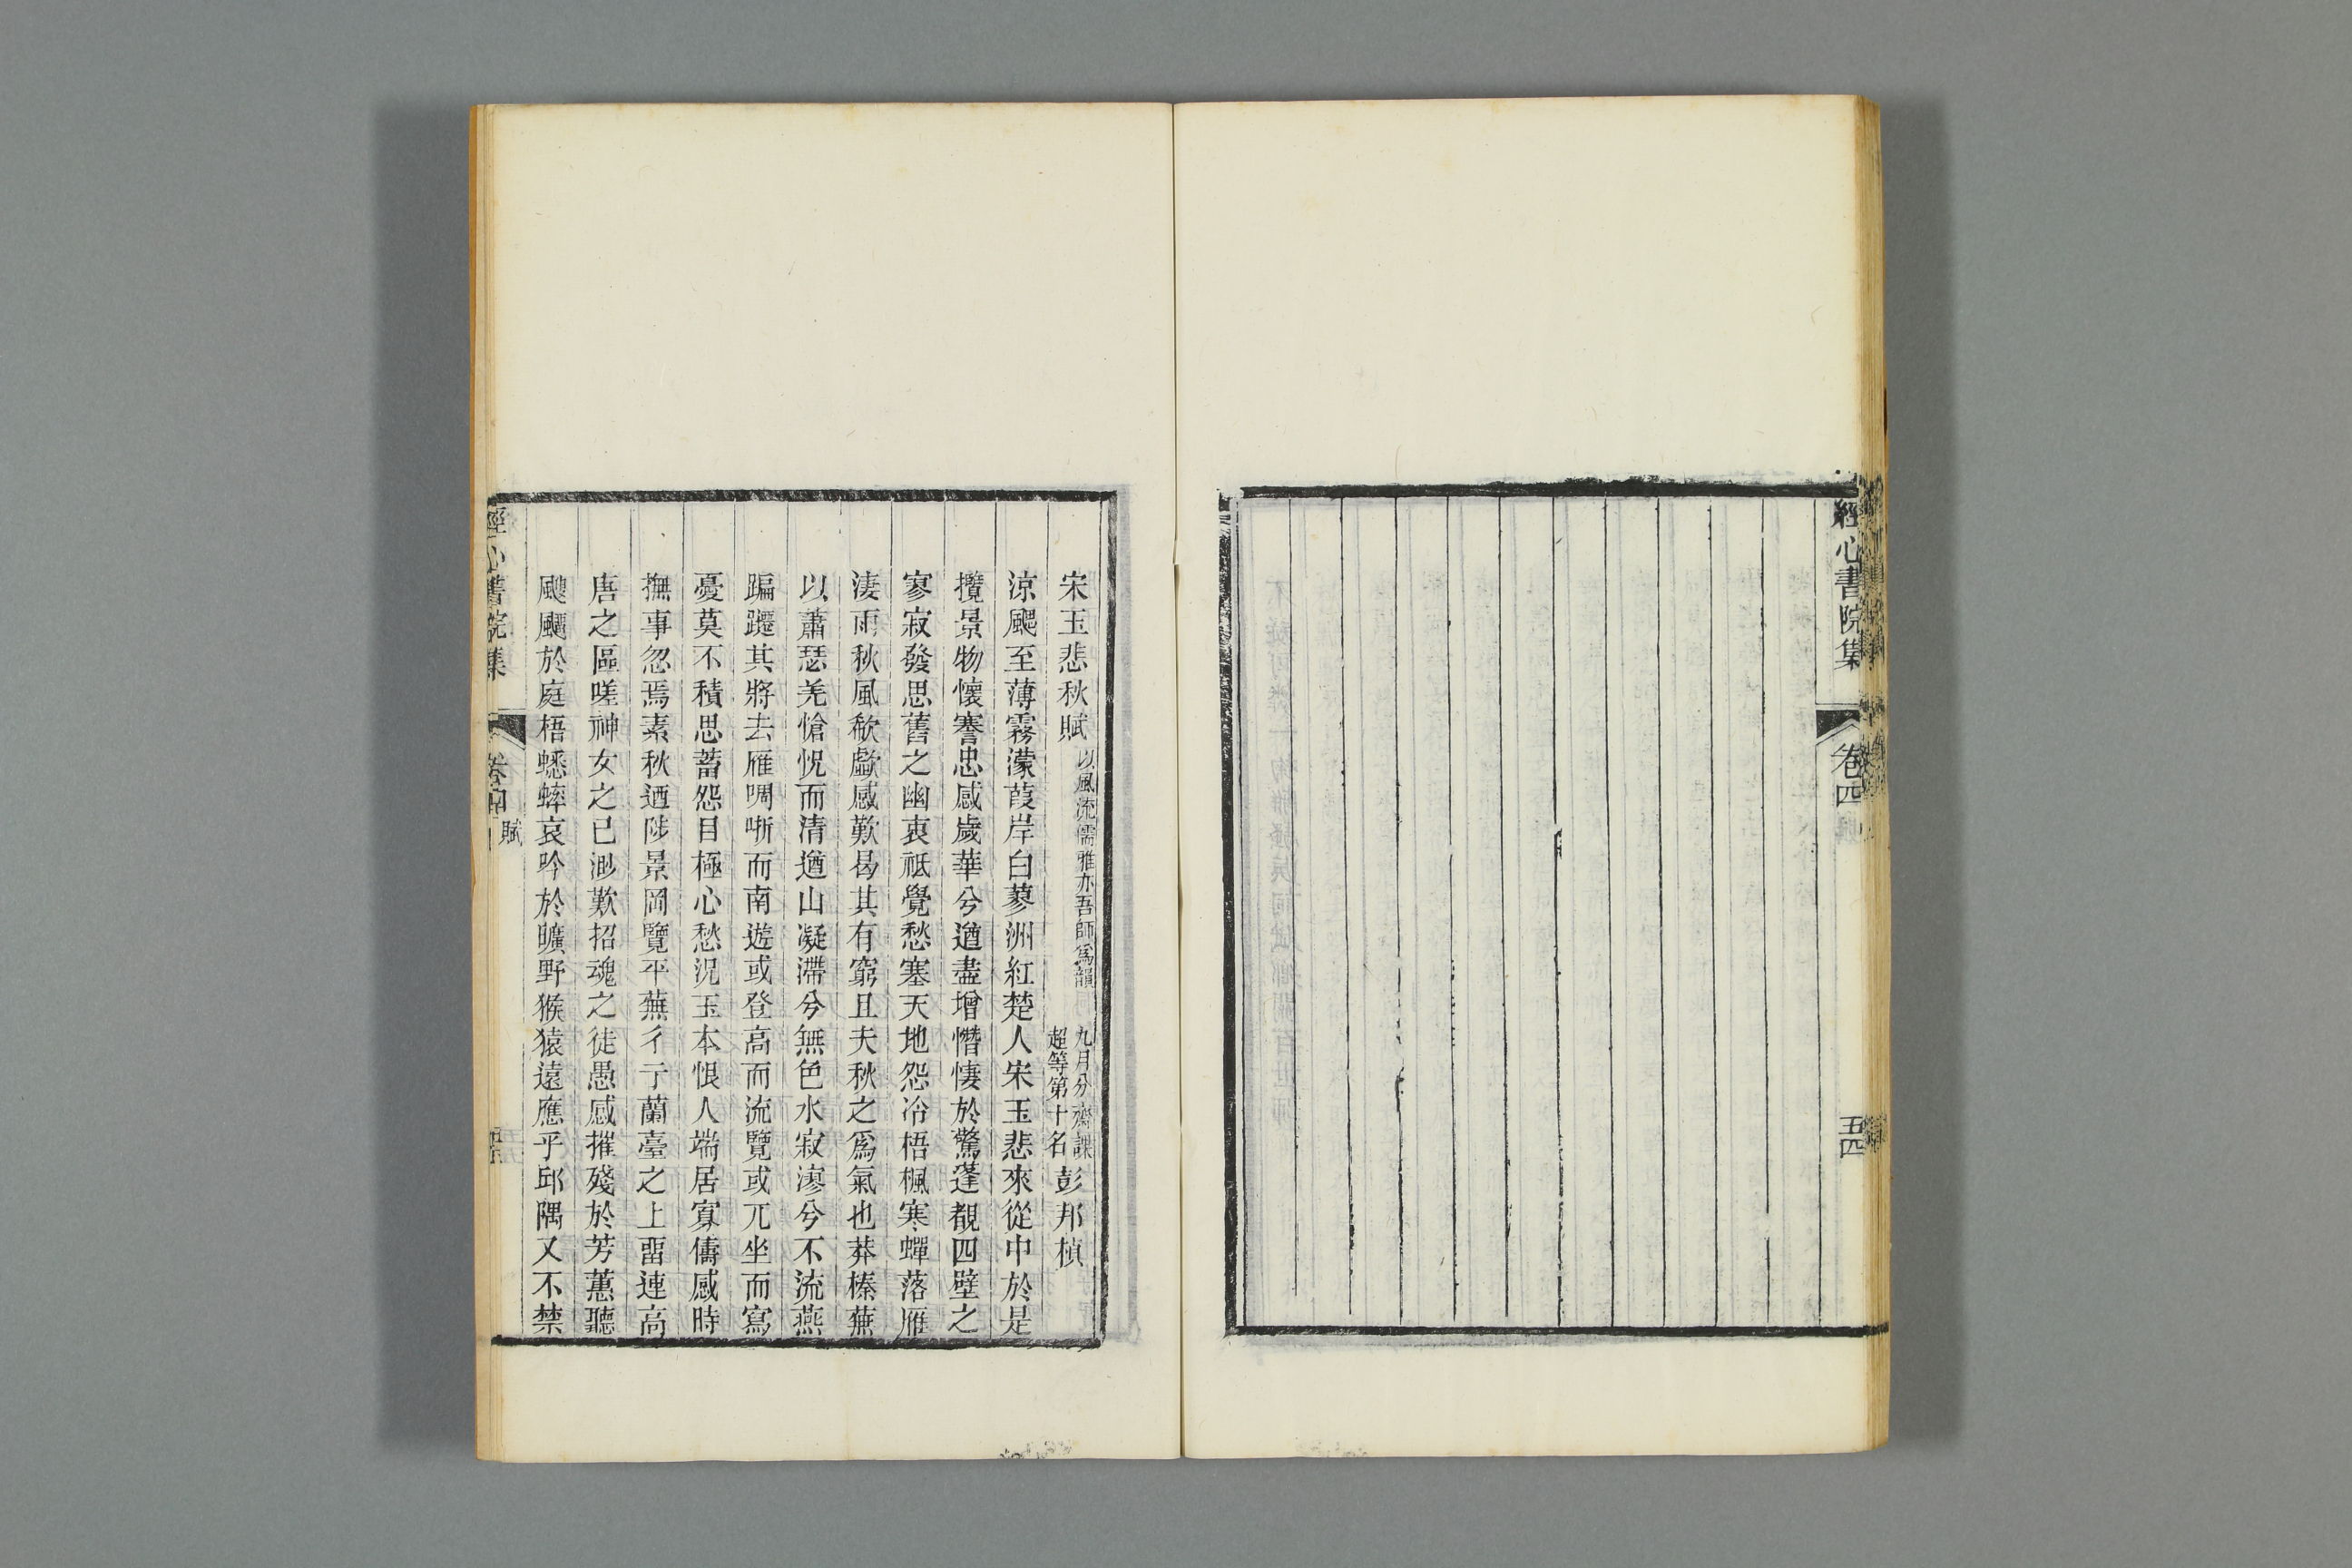 經心書院集
卷四
五四
宋玉悲秋賦 以風流儒雅亦吾師爲韻 九月分齋課超等第十名 彭邦楨
涼颸至薄霧濛葭岸白蓼洲紅楚人宋玉悲來從中於是
攬景物懷謇忠感歲華兮遒盡增憯悽於驚蓬覩四壁之
寥寂發思舊之幽衷祗覺愁塞天地怨冷梧楓寒蟬落雁
淒雨秋風欷歔感歎曷其有窮且夫秋之爲氣也莽榛蕪
以蕭瑟羌愴怳而清遒山凝滯兮無色水寂漻兮不流燕
蹁躚其將去雁啁哳而南遊或登高而流覽或兀坐而寫
憂莫不積思蓄怨目極心愁況玉本恨人端居寡儔感時
撫事忽焉素秋迺陟景岡覽平蕪彳亍蘭臺之上畱連高
唐之區嗟神女之已渺歎招魂之徒愚感摧殘於芳蕙聽
颼飀於庭梧蟋蟀哀吟於曠野猴猿遠應乎邱隅又不禁
經心書院集
卷四 賦